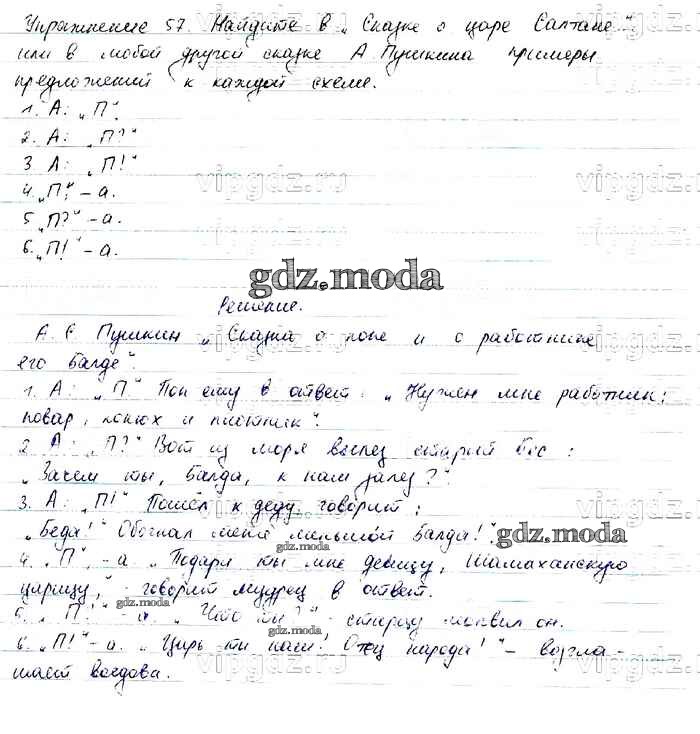 Упражнение 57. Найдите в „Сказке о царе Салтане"
или в любой другой сказке А Пушкина примеры
предложений к каждой схеме.
1. А: „П".
2. А: „П?"
3 А: „П!"
vipgdz.ru vipgdz.ru
4. „П", - а.
5 „П?" - а.
6. „П!" - а.
gdz.moda
Решение.
А. С. Пушкин „Сказка о попе и о работнике
его Балде".
1. А: „П." Поп ему в ответ: „Нужен мне работник:
повар, конюх и плотник".
2 А: „П?" Вот из моря вылез старый бес:
„Зачем ты, Балда, к нам залез?"
3. А: „П!" Пошёл к деду, говорит:
„Беда!" Обогнал меня меньшой Балда!".
gdz.moda
gdz.moda
4. „П", - а „Подари ты мне девицу, Шамаханскую
царицу," - говорит мудрец в ответ.
gdz.moda
5. „П?" - а. „Что ты?" - старцу молвил он.
gdz.moda
6. „П!" - а. „Царь ты наш! Отец народа!" - возгла-
шает воевода.
vipgdz.ru vipgdz.ru